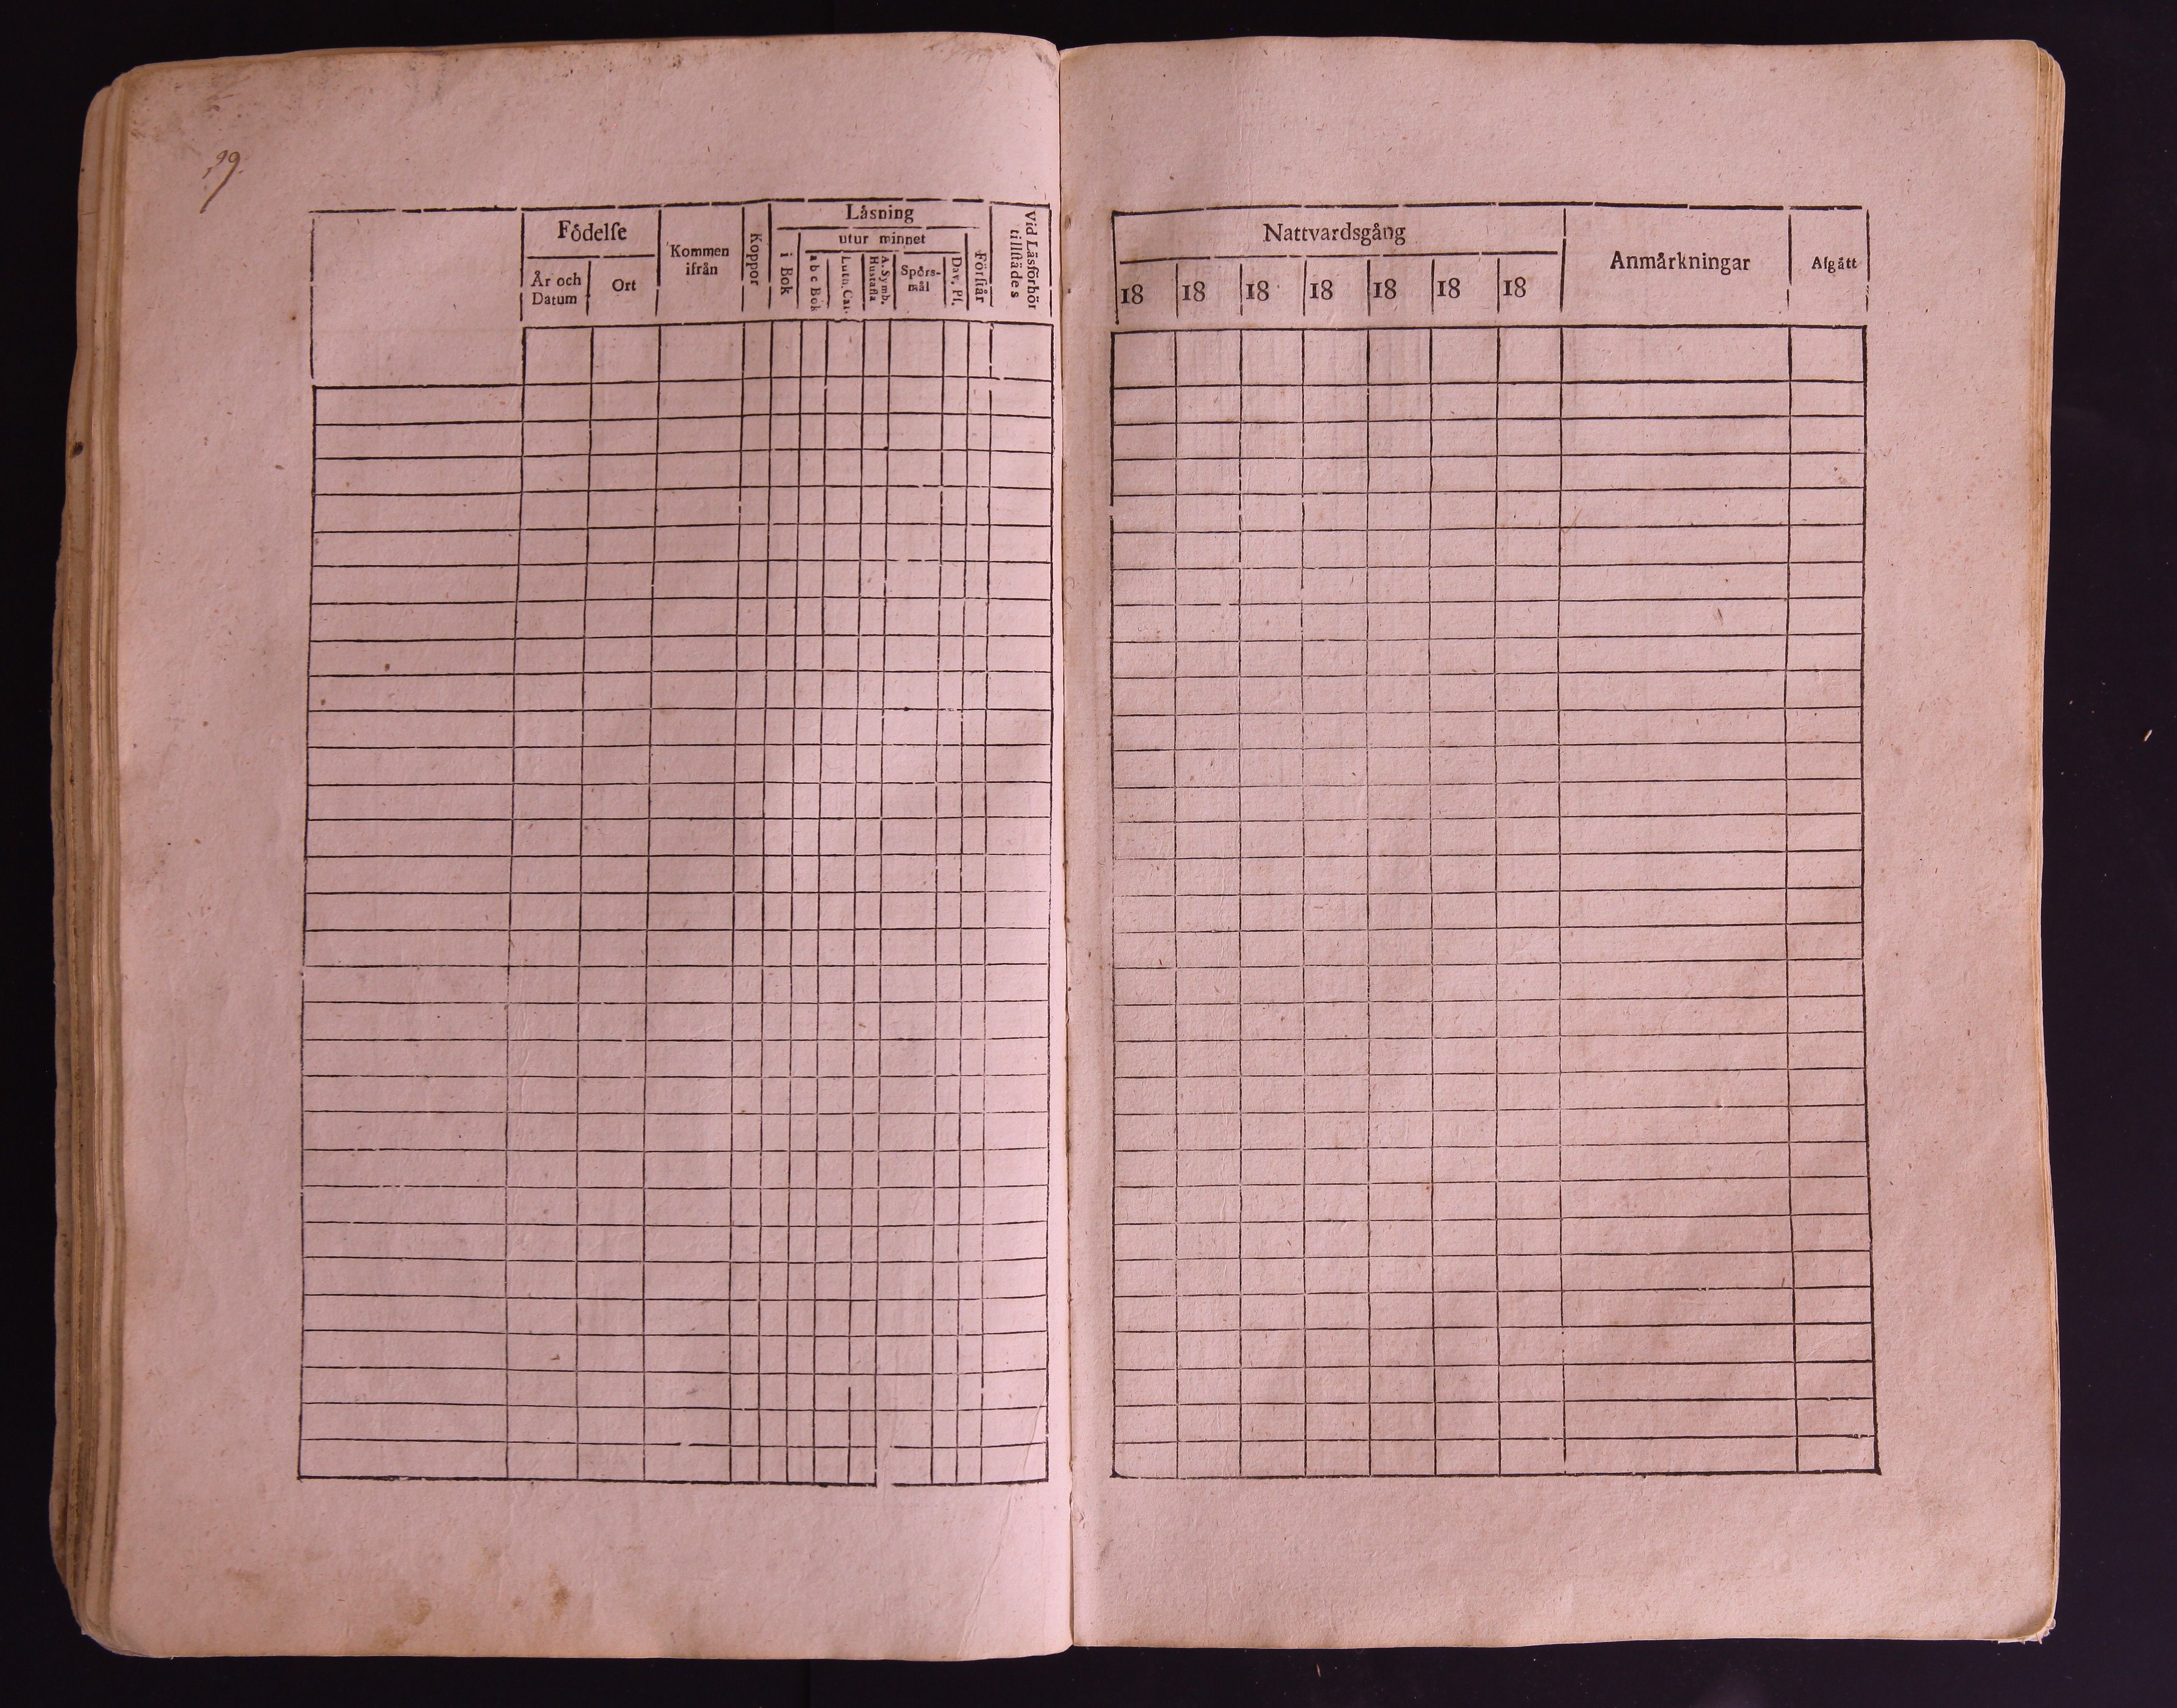 99.
Födelſe
År och
Datum
Ort
Kommen
ifrån
Koppor
Låsning
i Bok
utur minnet
a b c Bok
Luth. Cat.
A. Symb.
Huſtafla
Spörs-
mål
Dav. Pſ.
Förſtår
Vid Läsförhör
tillſtädes
Nattvardsgång
18 18 18 18 18 18 18
Anmårkningar
Afgått